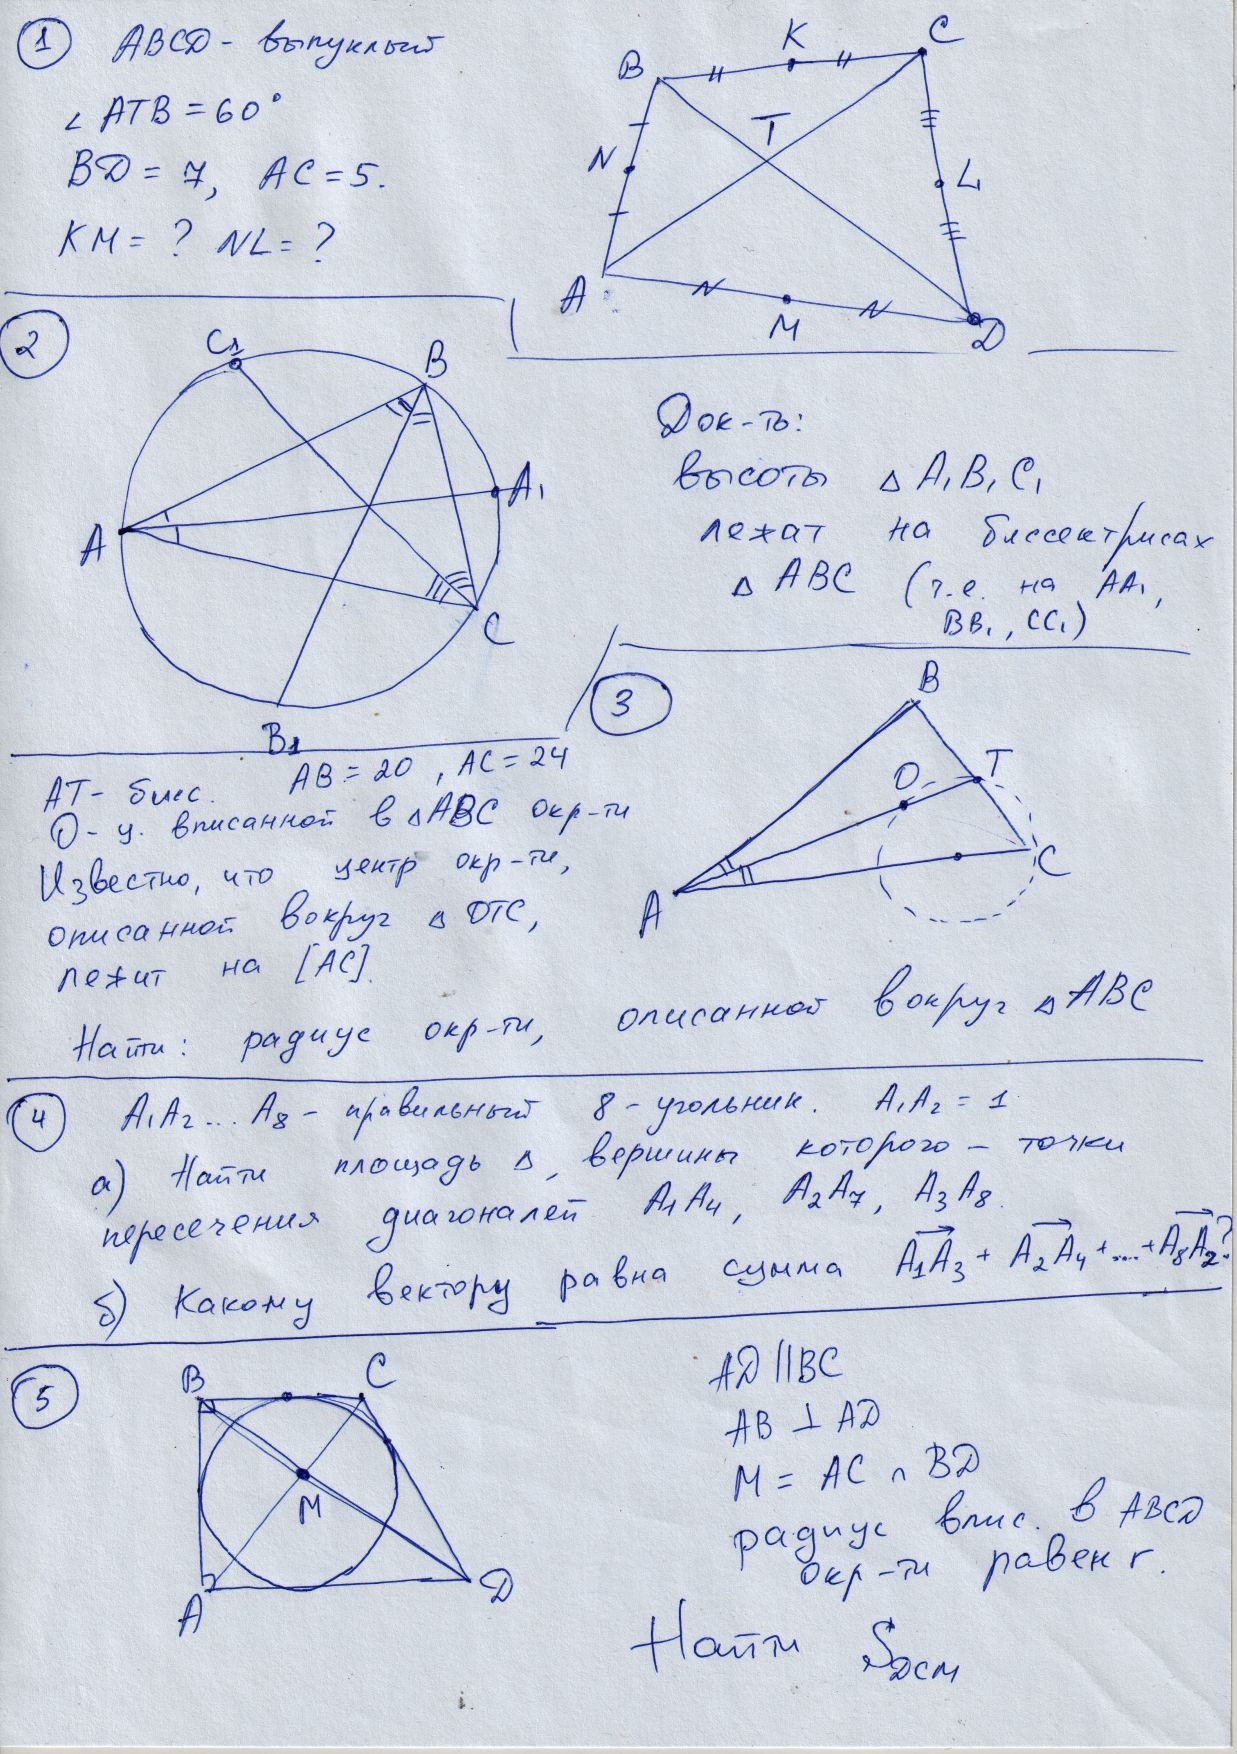 1 ABCD - выпуклый
∠ ATB = 60°
BD = 7, AC = 5.
KM = ? NL = ?
B K C
N T L
A M D
2
C₁ B
A A₁
C
B₁
Док-ть:
высоты △ A₁B₁C₁
лежат на биссектрисах
△ ABC (т.е. на AA₁,
BB₁, CC₁)
3
B
O T
A C
AT - бисс. AB = 20, AC = 24
O - ц. вписанной в △ABC окр-ти
Известно, что центр окр-ти,
описанной вокруг △ OTC,
лежит на [AC].
Найти: радиус окр-ти, описанной вокруг △ ABC
4 A₁A₂...A₈ - правильный 8-угольник. A₁A₂ = 1
а) Найти площадь △, вершины которого - точки
пересечения диагоналей A₁A₄, A₂A₇, A₃A₈.
б) Какому вектору равна сумма A₁A₃ + A₂A₄ + .... + A₈A₂?
5
B C
M
A D
AD || BC
AB ⊥ AD
M = AC ∩ BD
радиус впис. в ABCD
окр-ти равен r.
Найти S DCM